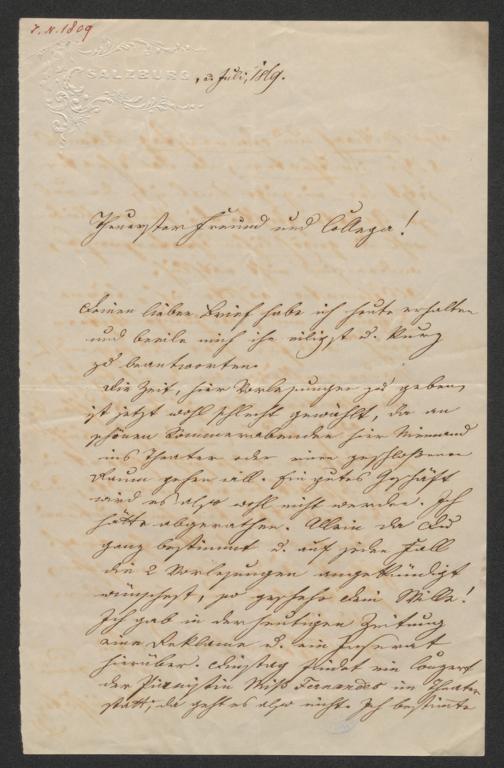 I. N. 1809
SALZBURG, 3. Juli, 1869.
Theuerster Freund und College!
Deinen lieben Brief habe ich heute erhalten
und beeile mich ihn eiligst u. kurz
zu beantworten.
Die Zeit, hier Vorlesungen zu geben,
ist jetzt wohl schlecht gewählt, da an
schönen Sommerabenden hier Niemand
ins Theater oder einen geschloßenen
Raum gehen will. Ein gutes Geschäft
wird es also wohl nicht werden. Ich
hätte abgerathen. Allein da Du
ganz bestimmt u. auf jeden Fall
die 2 Vorlesungen angekündigt
wünschest, so geschehe Dein Wille!
Ich gab in der heutigen Zeitung
eine Reklame u. ein Inserat
hierüber. Dinstag findet ein Conzert
der Pianistin Miß im Theater
statt, da geht es also nicht. Ich bestimte